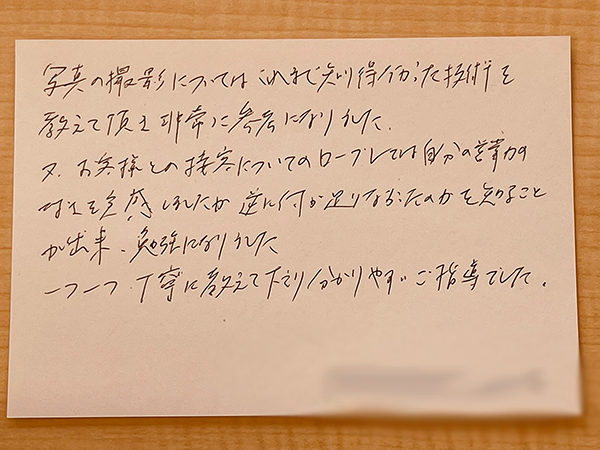 写真の撮影についてはこれまで知り得なかった技術を
教えて頂き非常に参考になりました.
又、お客様との接客についてのロープレでは自分の営業力の
なさを実感しましたが逆に何が足りなかったのかを知ること
が出来、勉強になりました
一つ一つ丁寧に教えて下さり分かりやすいご指導でした.